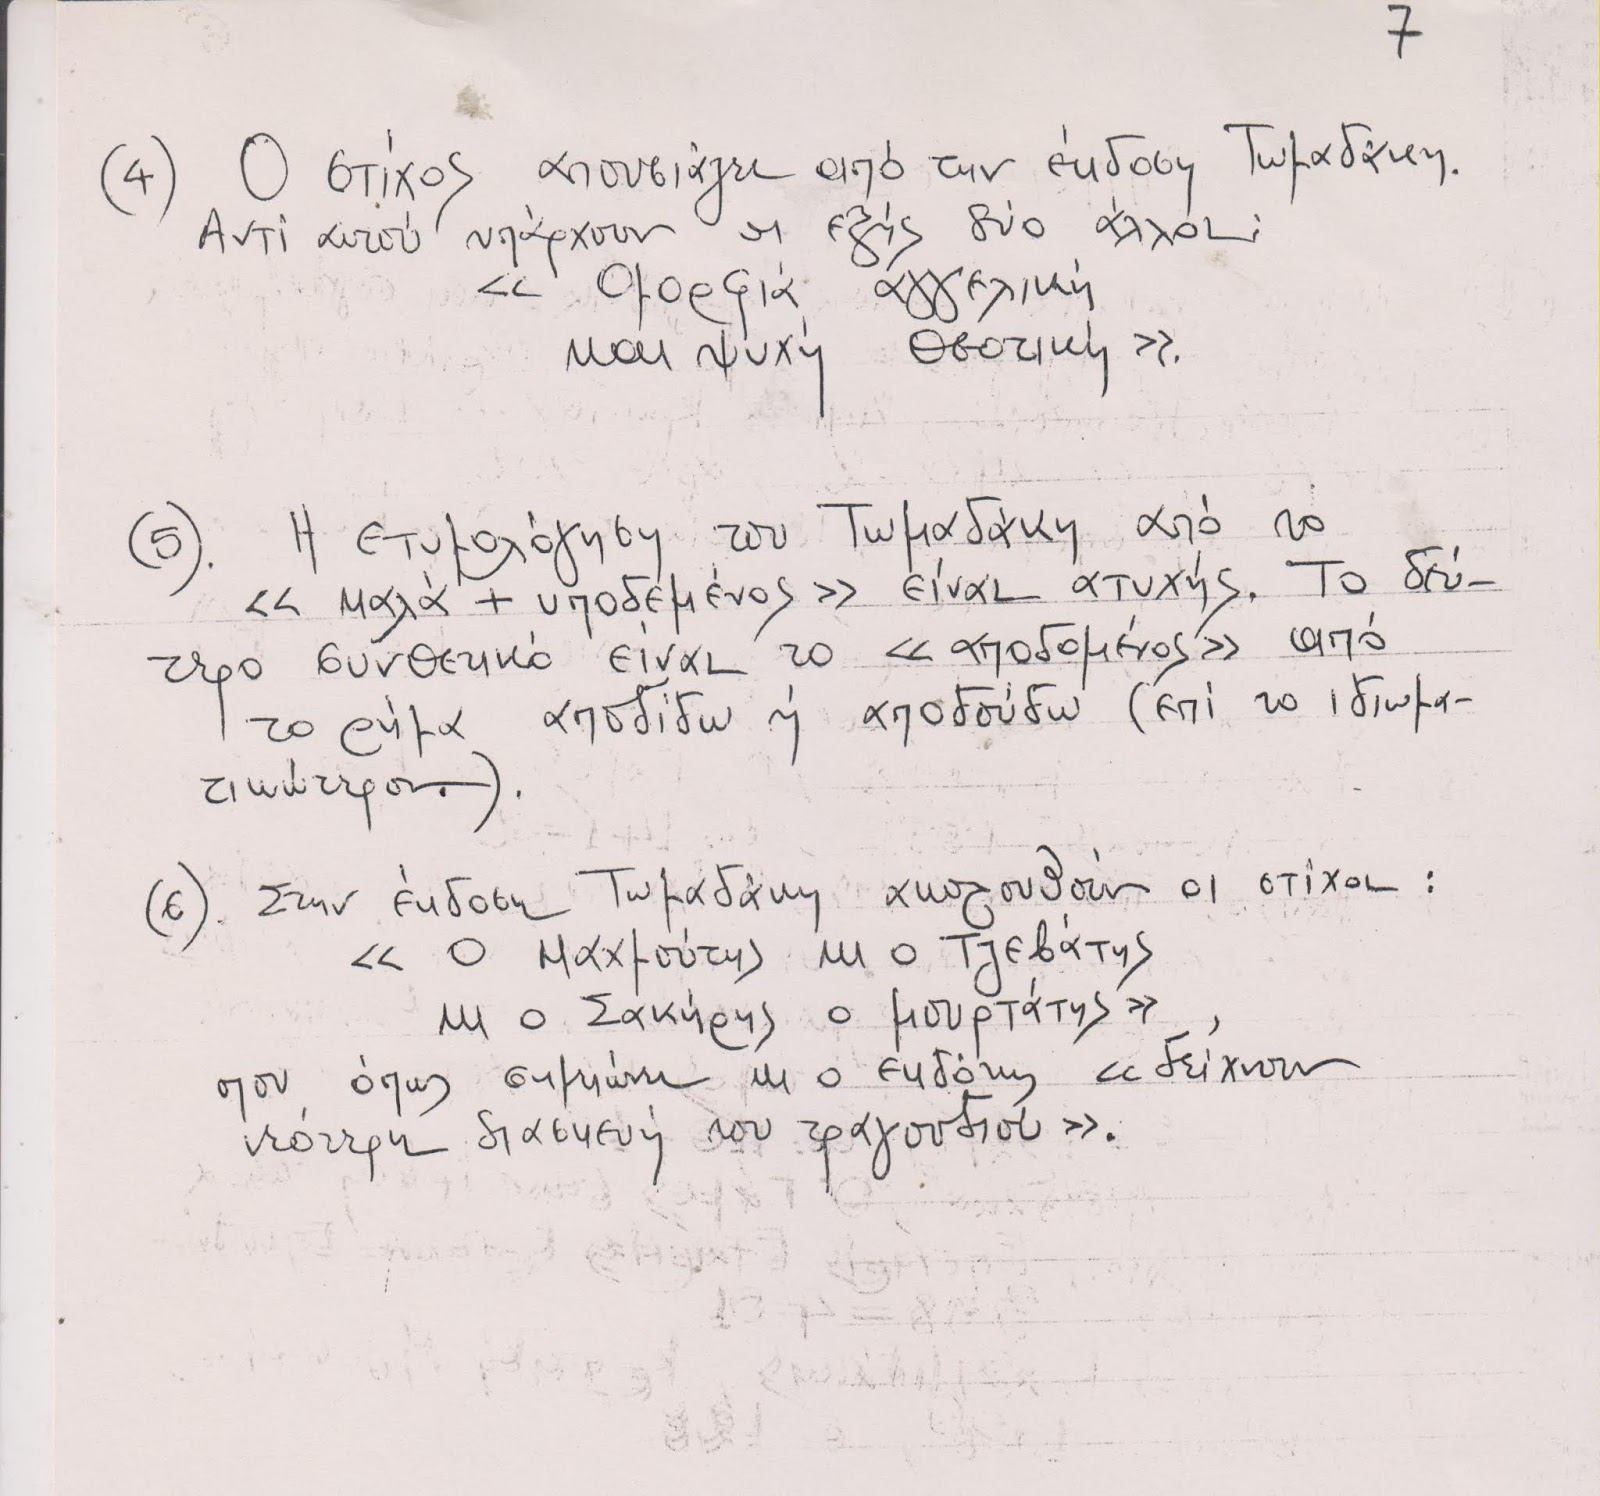 7
(4) Ο στίχος απουσιάζει από την έκδοση Τωμαδάκη.
Αντί αυτού υπάρχουν οι εξής δύο άλλοι:
« Ομορφιά αγγελική
και ψυχή Θεοτική ».
(5). Η ετυμολόγηση του Τωμαδάκη από το
« καλά + υποδεμένος » είναι ατυχής. Το δεύ-
τερο συνθετικό είναι το « αποδομένος » από
το ρήμα αποδίδω ή αποδούδω (επί το ιδιωμα-
τικώτερον.).
(6). Στην έκδοση Τωμαδάκη ακολουθούν οι στίχοι :
« Ο Μαχμούτης κι ο Τζεβάτης
κι ο Σακήρης ο μουρτάτης » ,
που όπως σημειώνει κι ο εκδότης « δείχνουν
νεότερη διασκευή του τραγουδιού ».